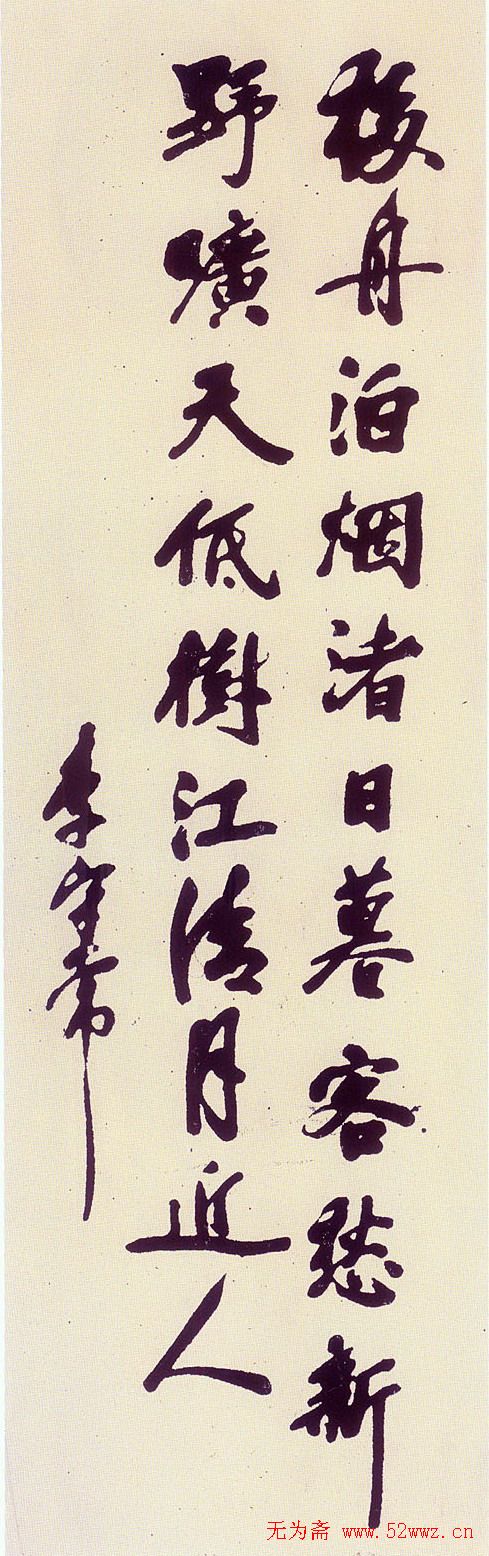 移舟泊烟渚日暮客愁新
野曠天低樹江清月近人
李守常
无为斋 www.52wwz.cn